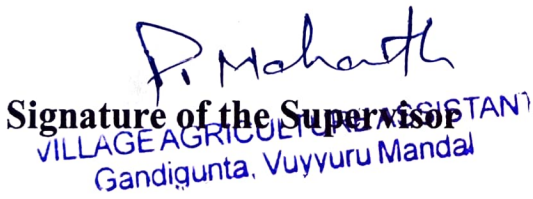 P. Mohanth
Signature of the Supervisor
VILLAGE AGRICULTURE ASSISTANT
Gandigunta, Vuyyuru Mandal